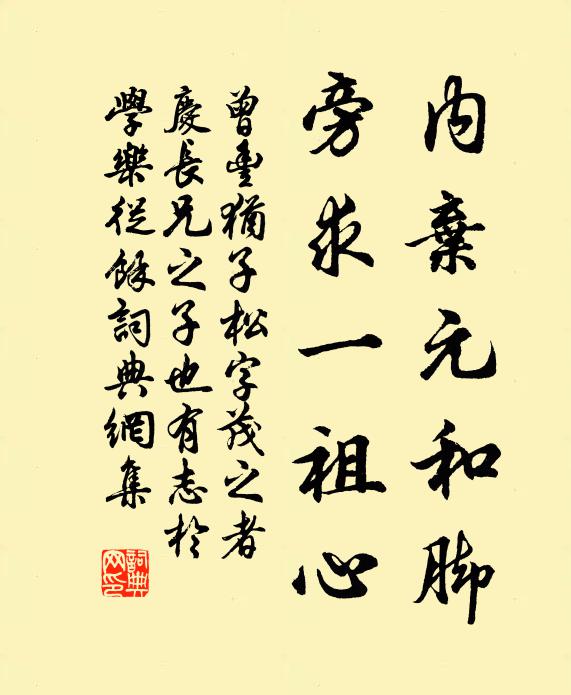 內棄元和脚
旁求一祖心
曾豊猶子松字茂之者
慶長兄之子也有志於
學樂從餘詞典網集